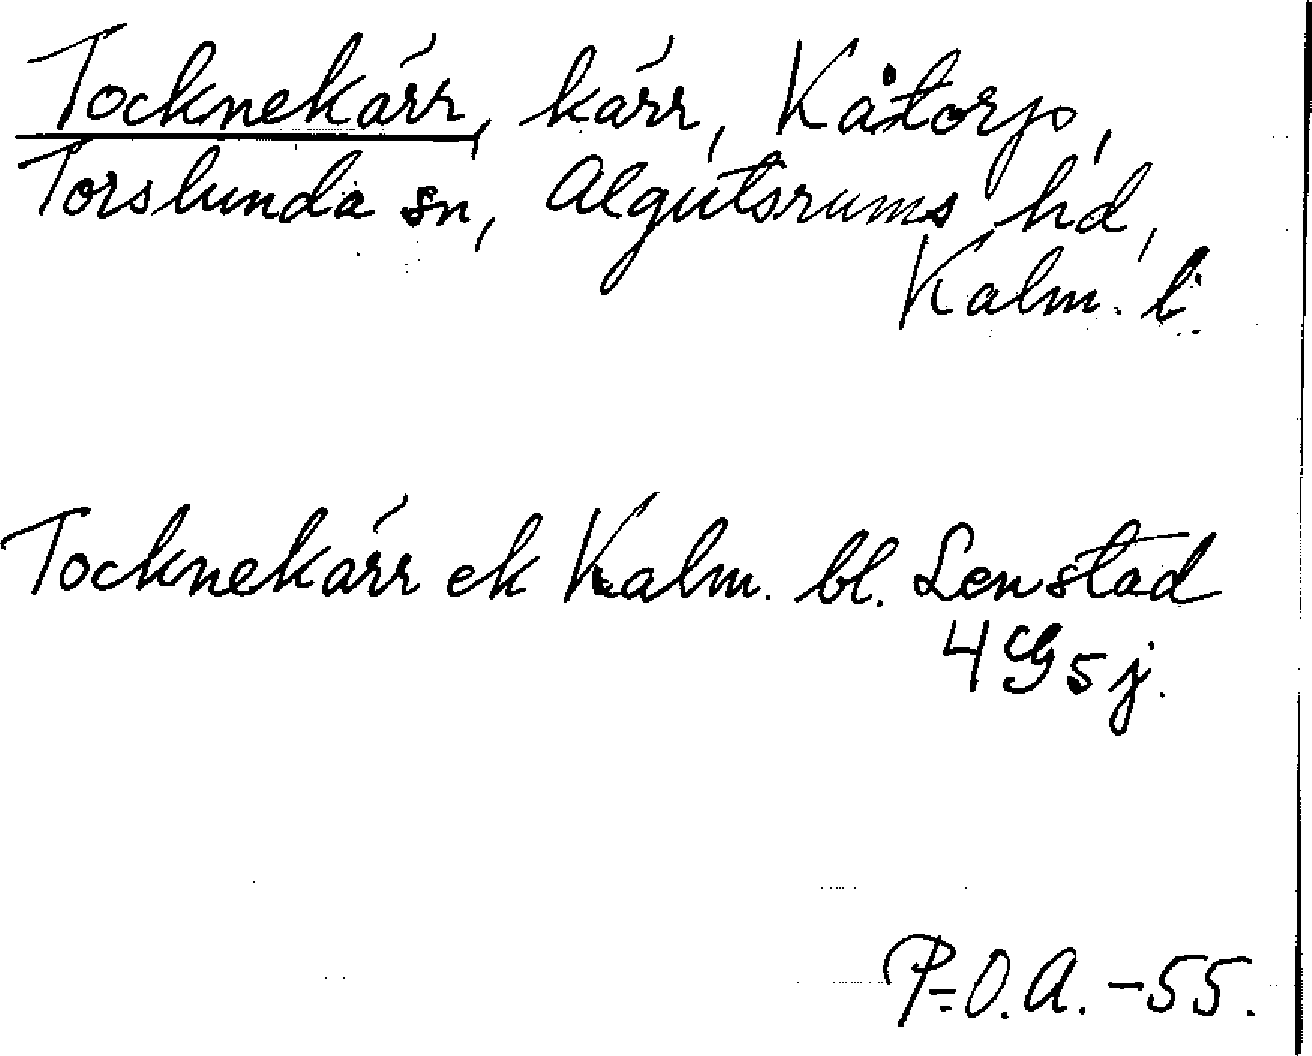 Tocknekärr, kärr, Kåtorp,
Torslunda sn, Algutsrums hd,
Kalm. l.
Tocknekärr ek Kalm. bl. Lenstad
4 G 5 j.
P-O.A. -55.